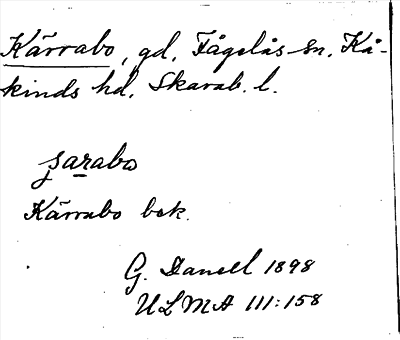 Kärrabo, gd, Fågelås sn, Kå-
kinds hd, Skarab. l.
Kärrabo bek.
G. Danell 1898
ULMA 111:158